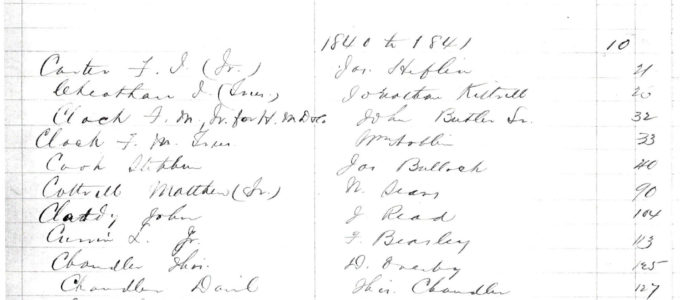 1840 to 1841 10
Carter F. I. (Tr.) Jas. Heflin 21
Cheatham I. (Trus.) Jonathan Kittrell 25
Clack F. M. Tr. for H. M. 32 John Butler Sr.
Clack F. M. Trus. Wm 33
Cook Stephen Jas Bullock 40
Cottrell Matthew (Tr.) N. Sears 90
John J Read 104
L. Jr. F. Beasley 113
Chandler Thos. D. Overby 125
Chandler Danl Thos. Chandler 127